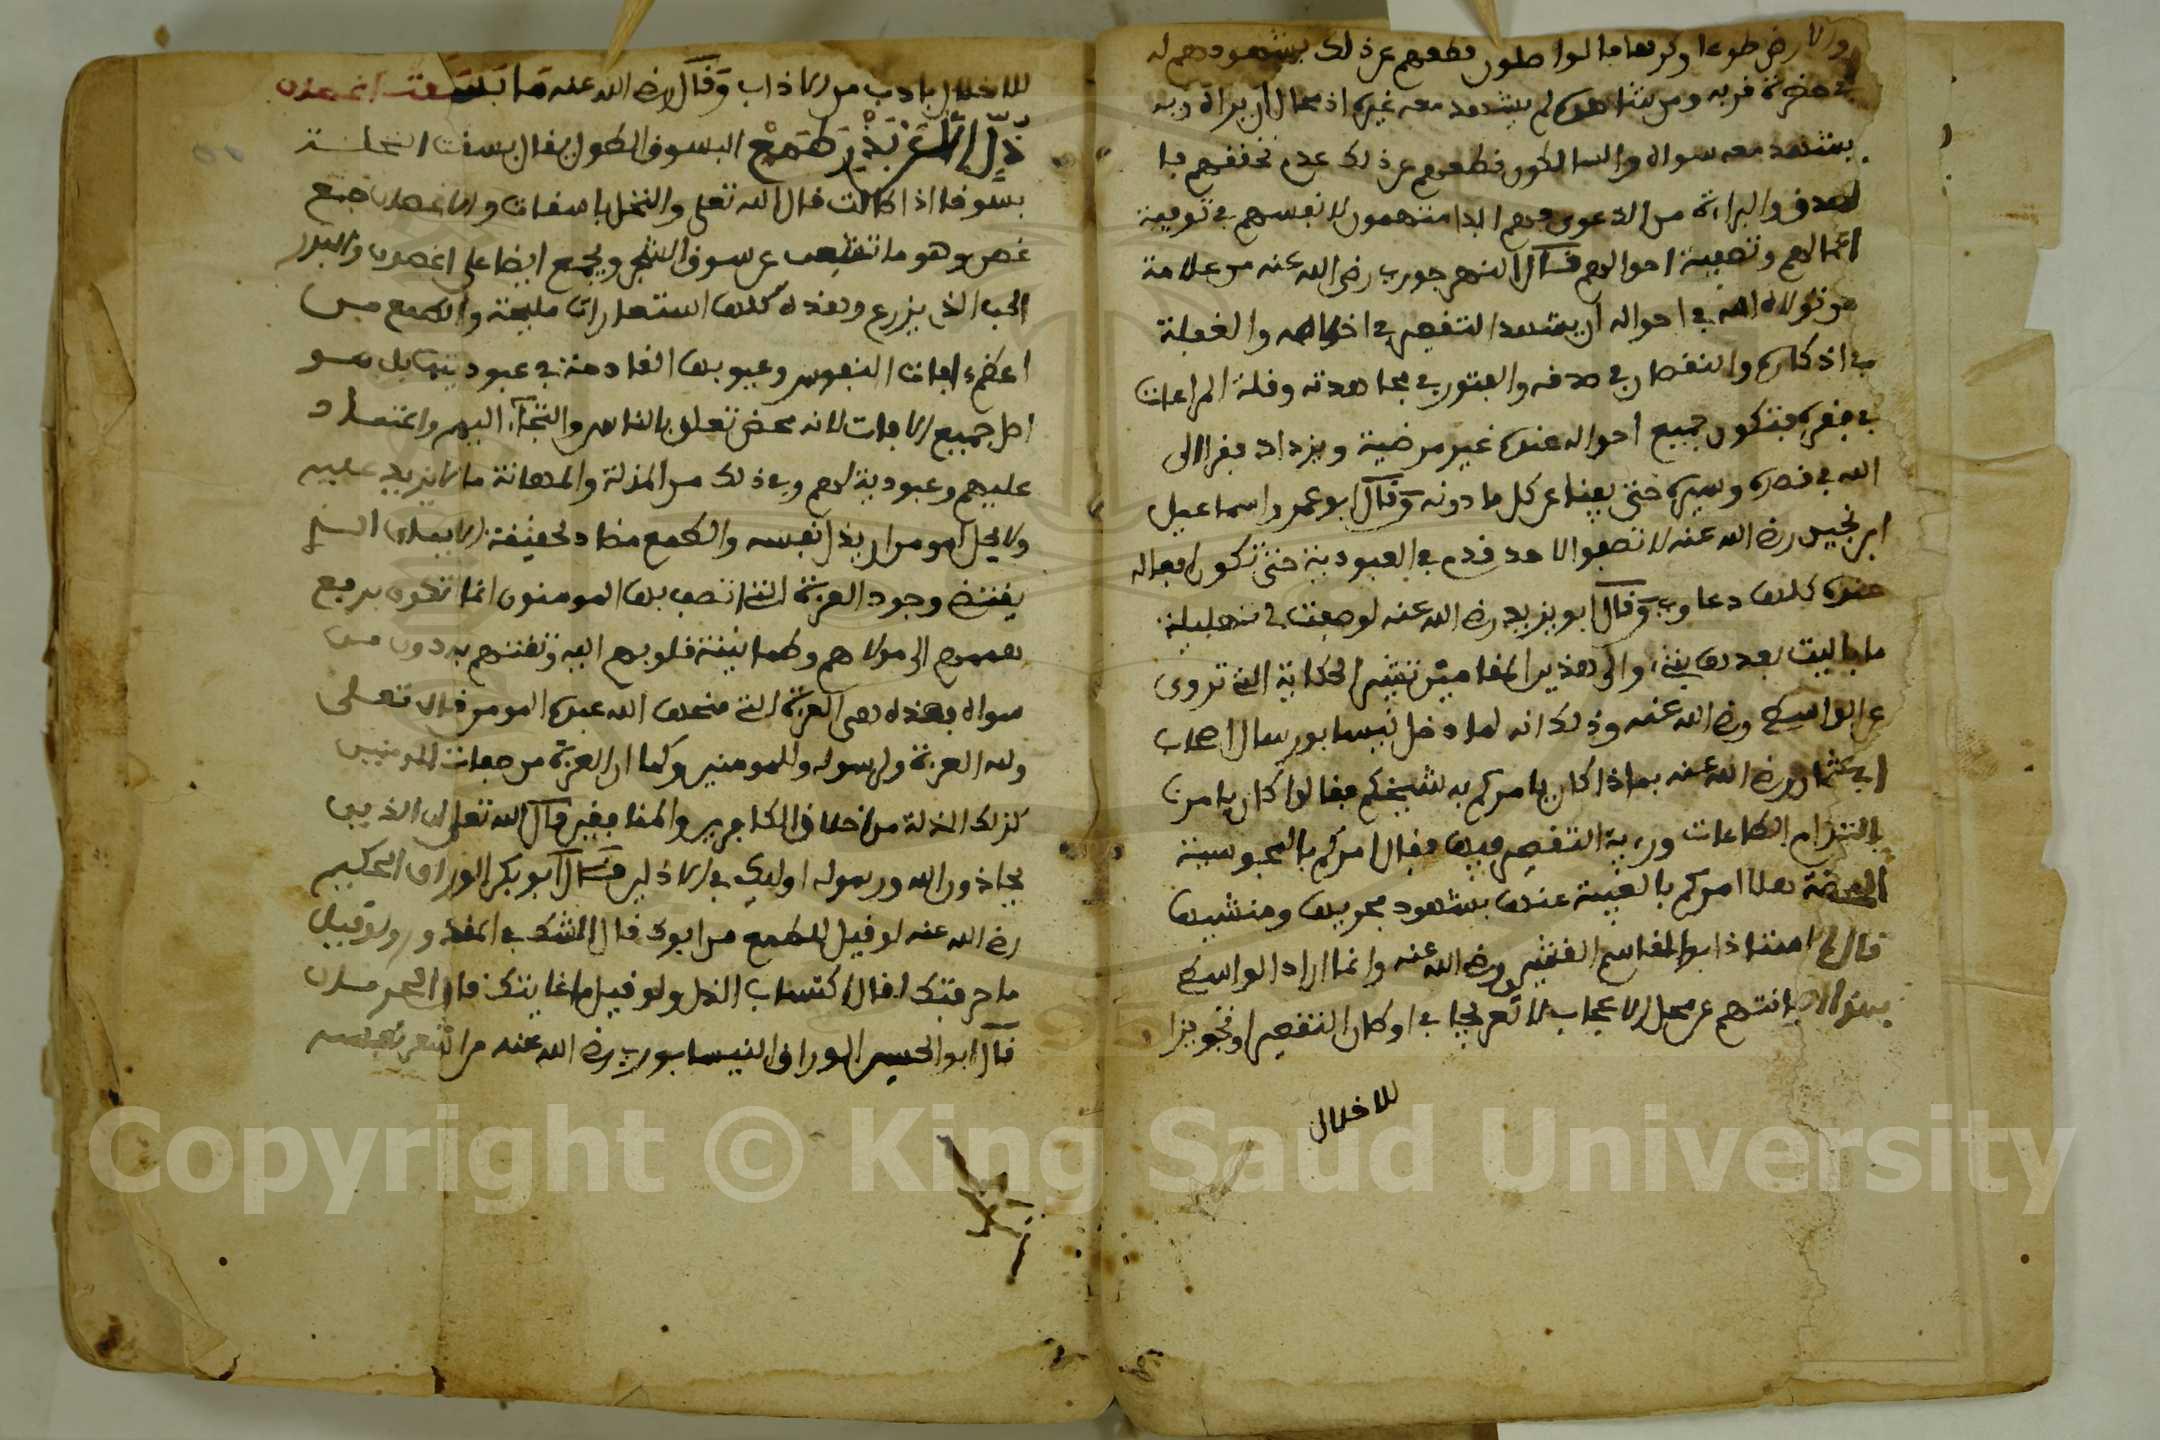 والارض طوعا وكرها ما لوا طلون قطعهم عن ذلك بشهودهم له
في حضرة قربه ومن شاهده لم يشهد معه غيره اذ محال ان يراه وبه
يشهد معه سواه والسالكون قطعهم عن ذلك عدم تحققهم با
لصدق والبراءة من الدعوى فهم ابدا متهمون لانفسهم في توفية
اعمالهم وتصفية احوالهم قال النهرجوري رضي الله عنه من علامة
من تولاه الله في احواله ان يشهد التقصير في اخلاصه والغفلة
في اذكاره والنقصان في صدقه والفتور في مجاهدته وقلة المراعات
في فقره فتكون جميع احواله عنده غير مرضية ويزداد فقرا الى
الله في قصده وسيره حتى يفنا عن كل ما دونه وقال ابو عمر واسماعيل
ابن نجيد رضي الله عنه لا تصفوا لاحد قدم في العبودية حتى تكون افعاله
عنده كلها دعاوي وقال ابو يزيد رضي الله عنه لو صفت لي تهليلة
ما باليت بعدها بشيء والى هذين المقامين تشير الحكاية التي تروى
عن الواسطي رضي الله عنه وذلك انه لما دخل نيسابور سال اصحاب
ابي عثمان رضي الله عنه بماذا كان يامركم به شيخكم فقالوا كان يامرنا
بالتزام الطاعات ورءية التقصير فيها فقال امركم بالمجوسية
المحضة هلا امركم بالغيبة عنها بشهود مجريها ومنشيها
قال الاستاذ ابو القاسم القشيري رضي الله عنه وانما اراد الواسطي
صيانتهم عن محل الاعجاب لا تعريجا في اوطان التقصير او تجويزا
للاخلال
للاخلال بادب من الاذاب وقال رضي الله عنه ما بسقت اغصان
ذل الا على بذر طمع البسوق الطول يقال بسقت النخلة
بسوقا اذا طالت قال الله تعلى والنخل باسقات والاغصان جمع
غصن وهو ما تشعب عن سوق الشجر ويجمع ايضا على اغصون والبذر
الحب الذي يزرع وهذه كلها استعارات مليحة والطمع من
اعظم افات النفوس وعيوبها القادحة في عبوديتها بل هو
اصل جميع الافات لانه محض تعلق بالناس والتجآء اليهم واعتماد
عليهم وعبودية لهم وفي ذلك من المذلة والمهانة ما لا يزيد عليه
ولا يحل لمومن ان يذل نفسه والطمع مضاد لحقيقة الايمان الذي
يقتضي وجود العزة التي اتصف بها المومنون انما تكون برفع
هممهم الى مولاهم وطمانينة قلوبهم اليه وثقتهم به دون من
سواه فهذه هي العزة التي منحها الله عبده المومن قال تعلى
ولله العزة ولرسوله وللمومنين وكما ان العزة من صفات المومنين
كذلك الذلة من اخلاق الكافرين والمنافقين قال الله تعلى ان الذين
يحاذون الله ورسوله اوليك في الاذلين قال ابو بكر الوراق الحكيم
رضي الله عنه لو قيل للطمع من ابوك قال الشك في المقدور ولو قيل
ما حرفتك لقال اكتساب الذل ولو قيل ما غايتك قال الحرمان
قال ابو الحسن الوراق النيسابوري رضي الله عنه من اشعر نفسه
Copyright © King Saud University